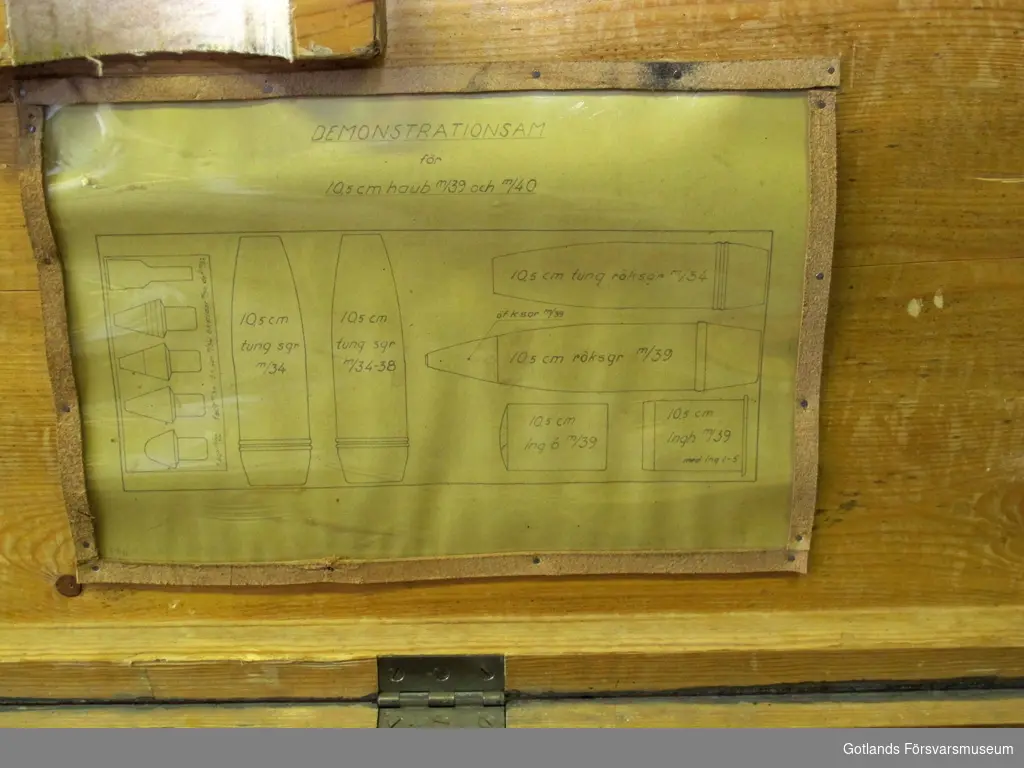 DEMONSTRATIONSAM
för
10,5 cm haub m/39 och m/40
10,5 cm
tung sgr
m/34
10,5 cm
tung sgr
m/34-38
10,5 cm tung röksgr m/34
10,5 cm röksgr m/39
10,5 cm
lng ö m/39
10,5 cm
lngh m/39
med lng 1-5
Gotlands Försvarsmuseum